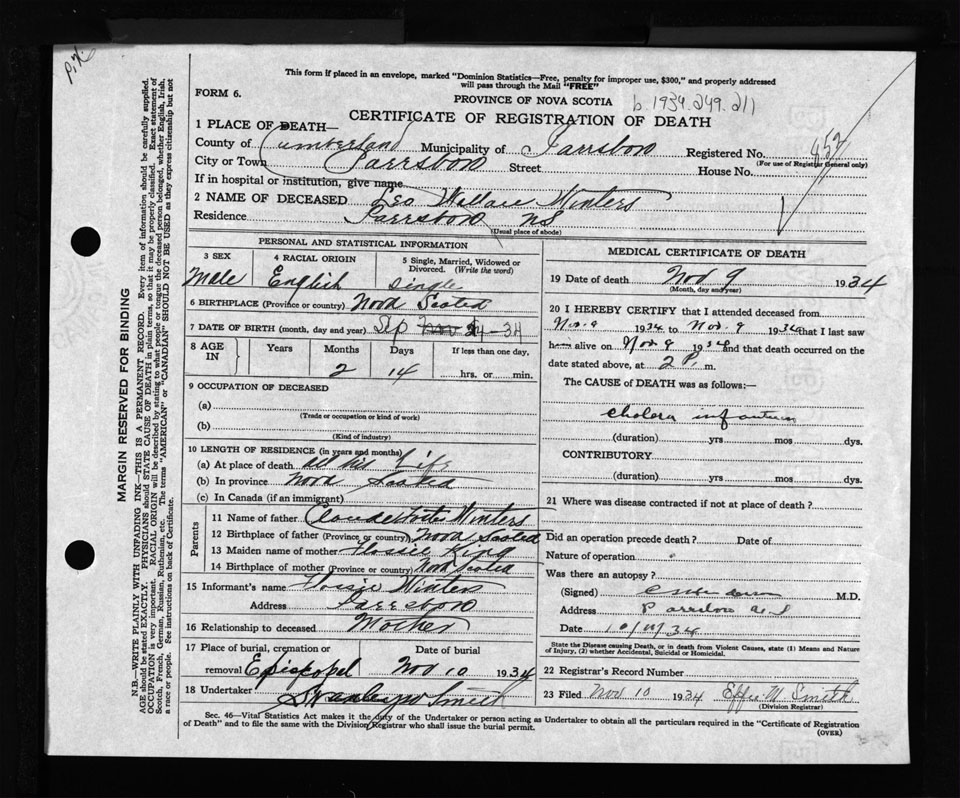 P.X.
This form if placed in an envelope, marked "Dominion Statistics—Free, penalty for improper use, $300," and properly addressed
will pass through the Mail "FREE"
FORM 6.
PROVINCE OF NOVA SCOTIA
b. 1934.249.211
CERTIFICATE OF REGISTRATION OF DEATH
1 PLACE OF DEATH—
County of Cumberland Municipality of Parrsboro Registered No. 552
(For use of Registrar General only)
City or Town Parrsboro Street House No.
If in hospital or institution, give name
2 NAME OF DECEASED Leo Wallace Winters
Residence Parrsboro NS
(Usual place of abode)
PERSONAL AND STATISTICAL INFORMATION
3 SEX
Male
4 RACIAL ORIGIN
English
5 Single, Married, Widowed or
Divorced. (Write the word)
Single
6 BIRTHPLACE (Province or country) Nova Scotia
7 DATE OF BIRTH (month, day and year) Sep 24-34
8 AGE
IN
Years Months Days If less than one day,
2 14 hrs. or min.
9 OCCUPATION OF DECEASED
(a)
(Trade or occupation or kind of work)
(b)
(Kind of industry)
10 LENGTH OF RESIDENCE (in years and months)
(a) At place of death all his life
(b) In province Nova Scotia
(c) In Canada (if an immigrant)
Parents
11 Name of father Claude Winters
12 Birthplace of father (Province or country) Nova Scotia
13 Maiden name of mother Flossie King
14 Birthplace of mother (Province or country) Nova Scotia
15 Informant's name Flossie Winters
Address Parrsboro
16 Relationship to deceased Mother
17 Place of burial, cremation or
removal Episcopal
Date of burial
Nov 10 1934
18 Undertaker Stanley W Smith
MEDICAL CERTIFICATE OF DEATH
19 Date of death Nov 9 1934
(Month, day and year)
20 I HEREBY CERTIFY that I attended deceased from
Nov. 9 1934 to Nov. 9 1934 that I last saw
h alive on Nov 9 1934 and that death occurred on the
date stated above, at 2 P. m.
The CAUSE of DEATH was as follows:—
cholera infantum
(duration) yrs mos dys.
CONTRIBUTORY
(duration) yrs mos dys.
21 Where was disease contracted if not at place of death?
Did an operation precede death? Date of
Nature of operation
Was there an autopsy?
(Signed) M.D.
Address Parrsboro N.S
Date 10/11/34
State the Disease causing Death, or in death from Violent Causes, state (1) Means and Nature
of Injury, (2) whether Accidental, Suicidal or Homicidal.
22 Registrar's Record Number
23 Filed Nov 10 1934 Effie M. Smith
(Division Registrar)
Sec. 46—Vital Statistics Act makes it the duty of the Undertaker or person acting as Undertaker to obtain all the particulars required in the "Certificate of Registration
of Death" and to file the same with the Division Registrar who shall issue the burial permit.
(OVER)
MARGIN RESERVED FOR BINDING
N.B.—WRITE PLAINLY WITH UNFADING INK—THIS IS A PERMANENT RECORD. Every item of information should be carefully supplied.
AGE should be stated EXACTLY. PHYSICIANS should STATE CAUSE OF DEATH in plain terms, so that it may be properly classified. Exact statement of
OCCUPATION is very important. RACIAL ORIGIN will be described by stating to what people or tongue the deceased person belonged, whether English, Irish,
Scotch, French, German, Russian, Ruthenian, etc. The terms "AMERICAN" or "CANADIAN" SHOULD NOT BE USED as they express citizenship but not
a race or people. See instructions on back of Certificate.